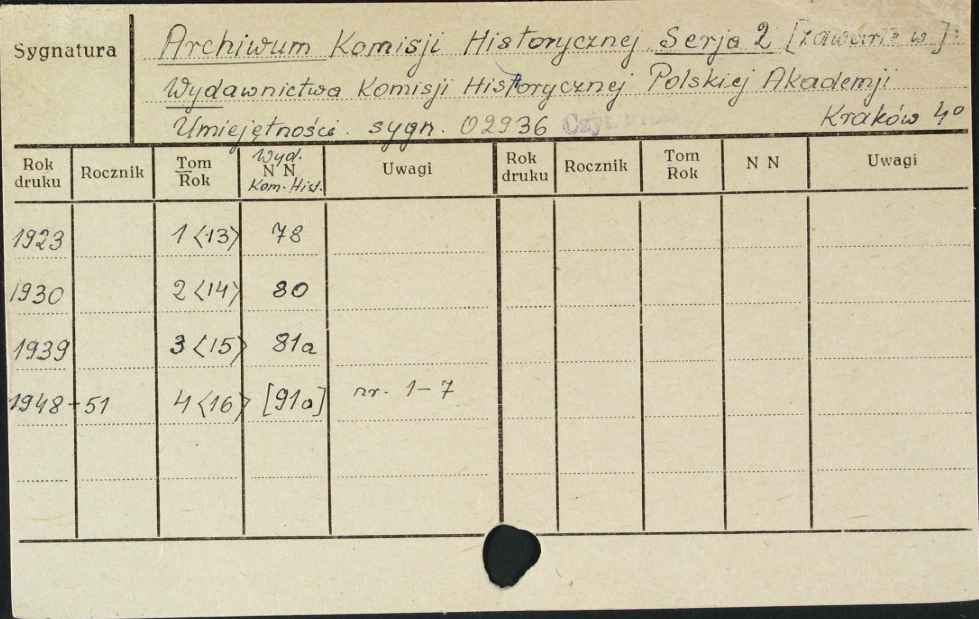 Sygnatura
Archiwum Komisji Historycznej Serja 2 [zawarte w]:
Wydawnictwa Komisji Historycznej Polskiej Akademji
Umiejętności. sygn. 02936
Kraków 4°
Rok druku Rocznik Tom Rok Wyd. N N Kom. Hist. Uwagi Rok druku Rocznik Tom Rok N N Uwagi
1923 1 <13> 78
1930 2 <14> 80
1939 3 <15> 81a
1948-51 4 <16> [91a] nr. 1-7